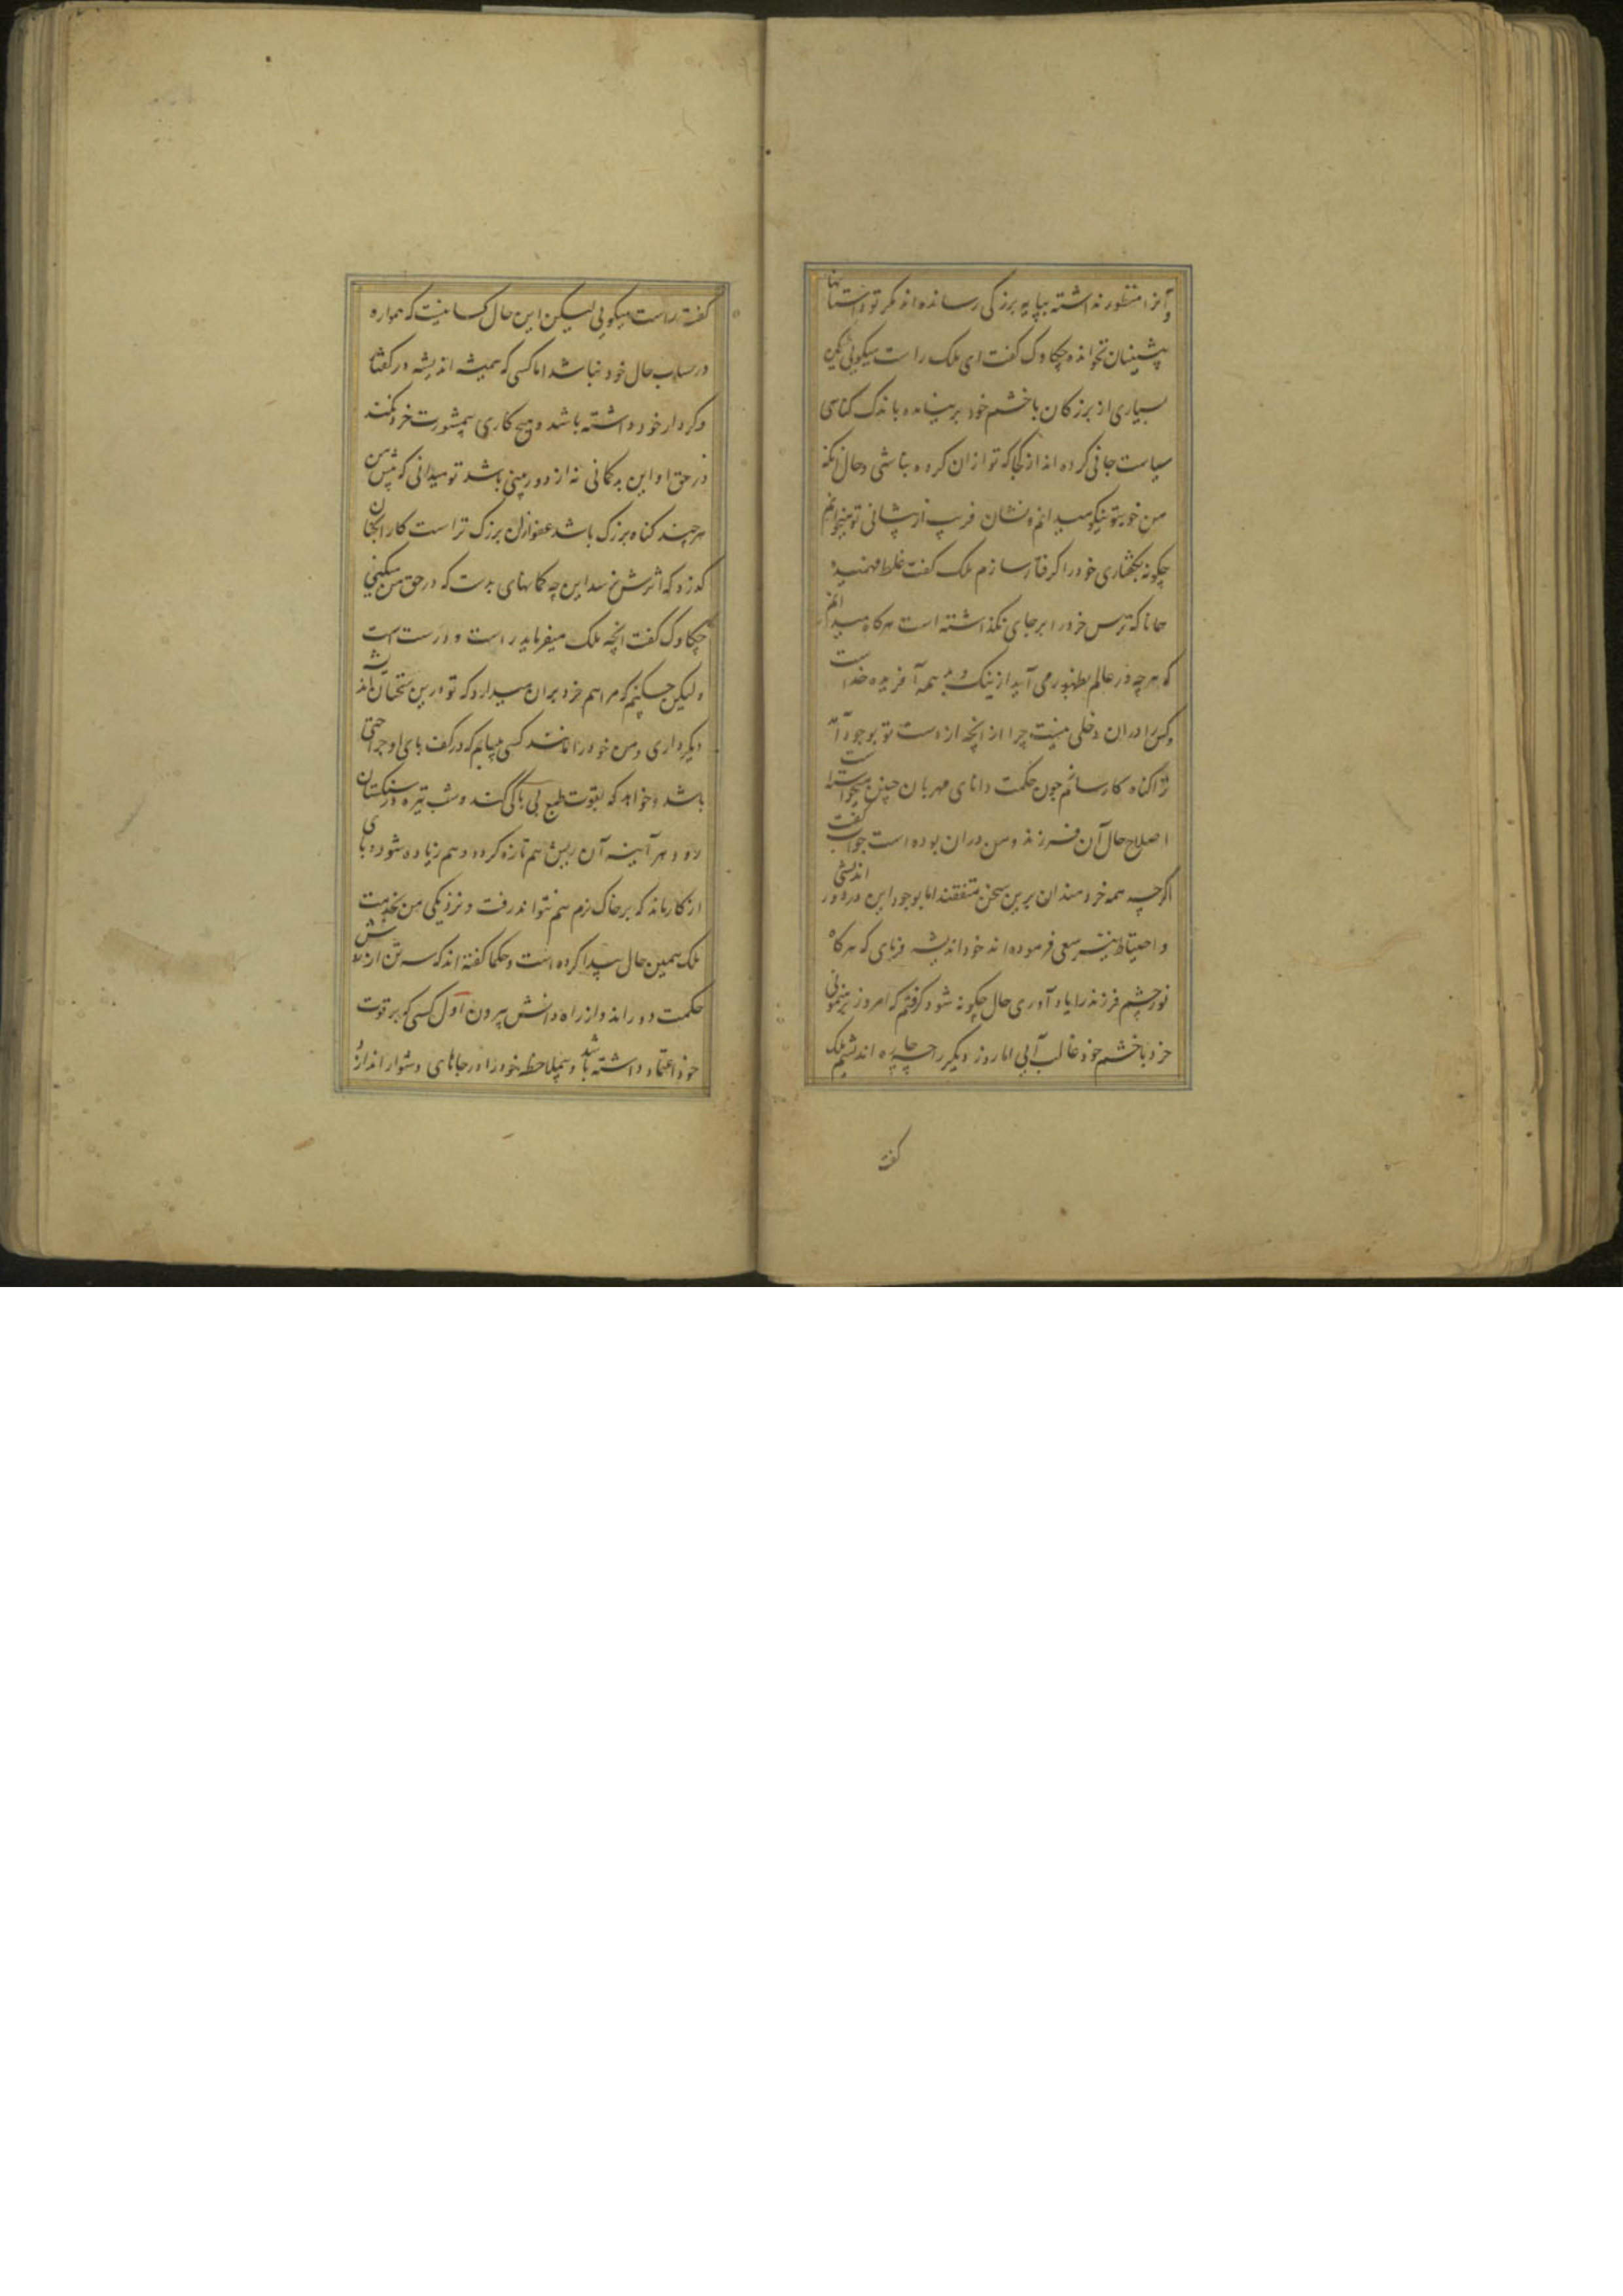 و آنرا منظور نداشته بپایه بزرکی رسانده اند مکر تو داستانها
پیشینیان نخوانده چکاوک کفت ای ملک راست میکوئی لیکن
بسیاری از بزرکان با خشم خود بر نیامده باندک کناهی
سیاست جانی کرده اند از کجا که تو ازان کروه نباشی وحال آنکه
من خوی تو نیکو میدانم و نشان فریب از پیشانی تو میخوانم
چکونه بکفتاری خود را کرفتار سازم ملک کفت غلط فهمیده
همانا که ترس خرد را بر جای نکذاشته است هرکاه میدانم
که هرچه در عالم بظهور می آید از نیک و بد همه آفریده خداست
و کس را دران دخلی نیست چرا از انچه از دست تو بوجود آمد
ترا کناه کار سازم چون حکمت دانای مهربان چنین میخواست
اصلاح حال آن فرزند و من دران بوده است جواب کفت
اکرچه همه خردمندان برین سخن متفقند اما بوجود این در دور اندیشی
و احتیاط نیز سعی فرموده اند خود اندیشه فرمای که هرکاه
نور چشم فرزند را یاد آوری حال چکونه شود کرفتم که امروز برهنمونی
خرد با خشم خود غالب آیی اما روز دیکر را چه چاره اندیشیم ملک
کفت
کفت راست میکویی لیکن این حال کسانیست که همواره
در حساب حال خود نباشد اما کسی که همیشه اندیشه در کفتا
و کردار خود داشته باشد و هیچ کاری بیمشورت خرد نکند
در حق او این بد کمانی نه از دور بینی باشد تو میدانی که پیش من
هر چند کناه بزرک باشد عفو ازان بزرک تر است کار انجان
کذرد که اثرش نرسد این چه کمانهای بدست که در حق من میکنی
چکاوک کفت انچه ملک میفرماید راست و درست است
و لیکن چکنم که مرا هم خرد بران میدارد که تو درین سخنان اندیشه
دیکر داری و من خود را مانند کسی مییابم که در کف پای او جراحتی
باشد و خواهد که بقوت طبع بی باکی کند و شب تیره در سنکستان
رود هر آینه آن ریش هم تازه کردد و هم زیاده شود و پای
از کار باند که بر خاک نرم هم نتواند رفت و نزدیکی من بخدمت
ملک همین حال پیدا کرده است و حکما کفته اند که سه تن از روش
حکمت دوراند و از راه دانش بیرون اول کسی که بر قوت
خود اعتماد داشته باشد و بیملاحظه خود را در جاهای دشوار اندازد